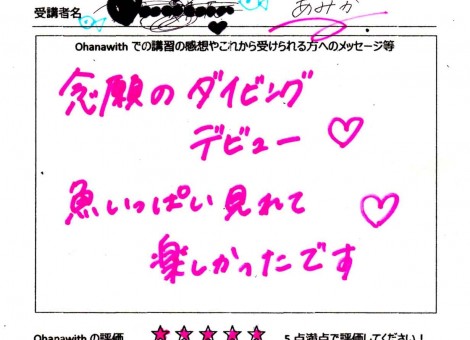 受講者名 あみか
Ohanawith での講習の感想やこれから受けられる方へのメッセージ等
念願のダイビング
デビュー♡
魚いっぱい見れて♡
楽しかったです
Ohanawith の評価 ★★★★★ 5 点満点で評価してください！